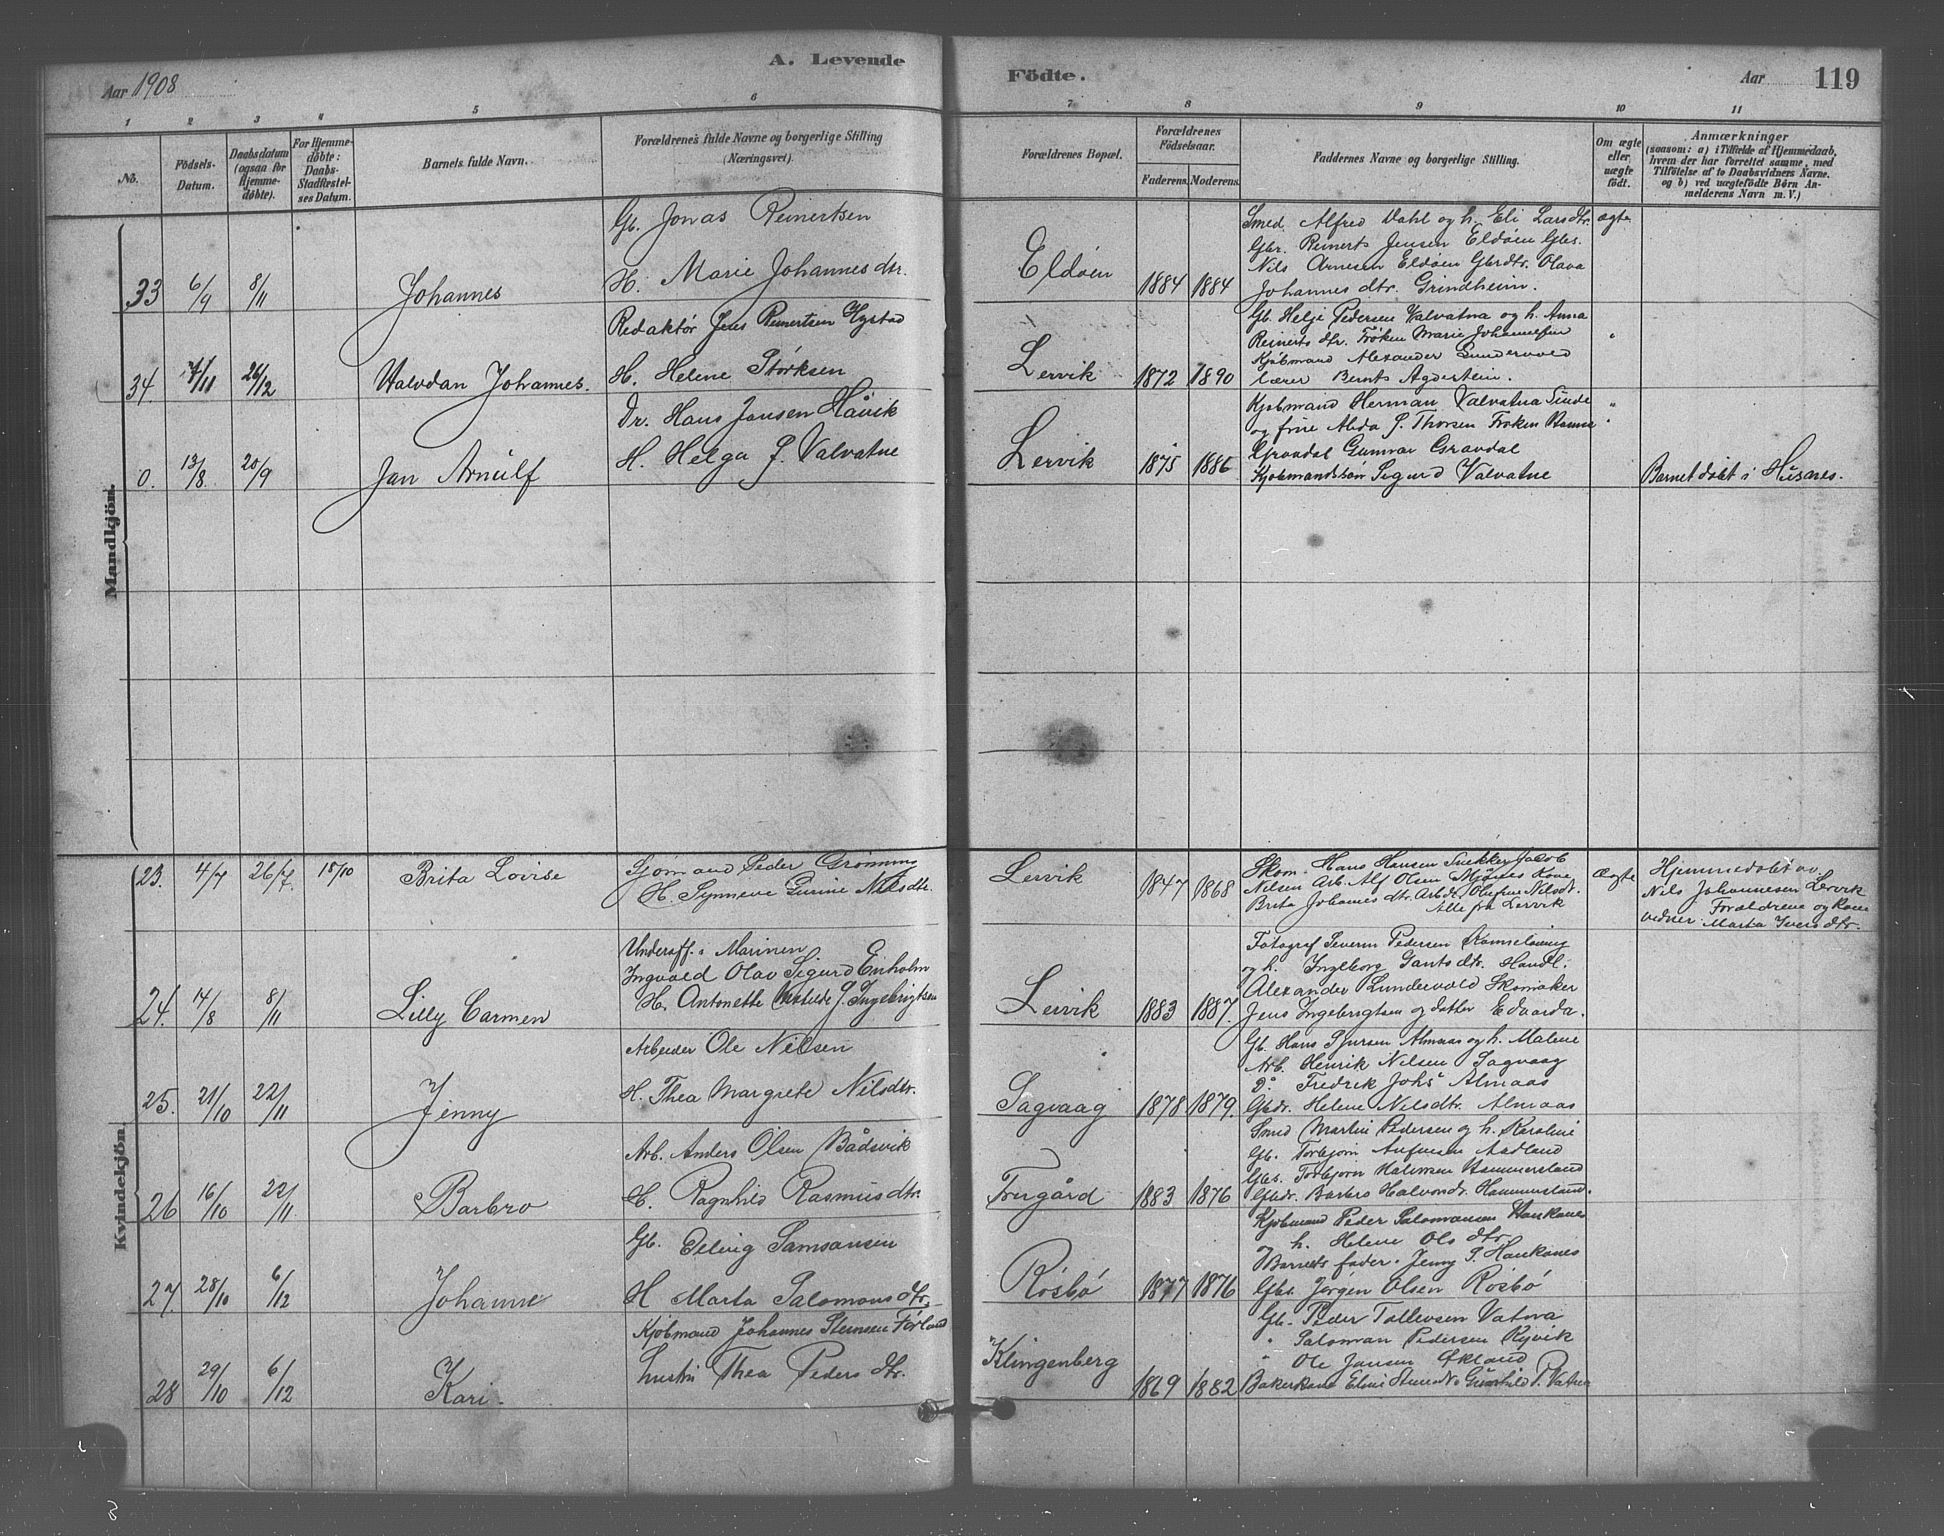 A. Levende Födte.
Aar 1908
Aar 119
1 2 3 4 5 6 7 8 9 10 11
No.
Födsels-Datum.
Daabsdatum (ogsaa for Hjemmedöbte).
For Hjemmedöbte: Daabs-Stadfæstelses Datum.
Barnets fulde Navn.
Forældrenes fulde Navne og borgerlige Stilling (Næringsvei).
Forældrenes Bopæl.
Forældrenes Födselsaar.
Faderens. Moderens.
Faddernes Navne og borgerlige Stilling.
Om ægte eller uægte födt.
Anmærkninger
(saasom: a) i Tilfælde af Hjemmedaab,
hvem der har forrettet samme, med
Tilföielse af to Daabsvidners Navne.
og b) ved uægtefödte Börn An-
melderens Navn m.V.)
Mandkjön.
33 6/9 8/11 Johannes
Gb. Jonas Reinertsen
H. Marie Johannesdtr.
Eldøen 1884 1884
Smed Alfred Dahl og h. Eli Larsdtr.
Gbr. Reinerts Jensen Eldøen Gbs.
Nils Arnesen Eldøen Gbrdtr. Olava
Johannesdtr. Grindheim.
ægte
34 7/11 26/12 Halvdan Johannes.
Redaktør Jens Reinertsen Hystad
H. Helene Størksen
Lervik 1872 1890
Gb. Helge Pedersen Valvatna og h. Anna
Reinertsdtr. Frøken Marie Johannesen
Kjøbmand Alexander Lundervold
lærer Bernts Agdestein.
"
0. 13/8 20/9 Jan Arnulf
Dr. Hans Jansen Håvik
H. Helga J. Valvatne
Lervik 1875 1886
Kjøbmand Herman Valvatna Sunde
og frue Alida J. Thorsen Frøken Hanna
Gravdal Gunnar Gravdal
Kjøbmandssøn Sigurd Valvatne
"
Barnet døbt i Husnes.
Kvindekjön.
23. 4/7 26/7. 18/10 Brita Lovise
Sjømand Peder Grønning
H. Synneve Gurine Nilsdtr.
Lervik 1847 1868
Skom. Hans Hansen Snekker Jacob
Nilsen Arb. Alf Olsen Mjønes Kone
Brita Johannesdtr. Arbdtr. Olufine Nilsdt.
Alle fra Lervik
Ægte
Hjemmedøbt av
Nils Johannesen Lervik
Forældrene og Kone
vidner. Marta Iversdtr.
24. 14/8 8/11 Lilly Carmen
Underoff. i Marinen
Ingvald Olav Sigurd Enholm
H. Antonette J. Ingebrigtsen
Leirvik 1883 1887.
Fotograf Severin Pedersen
og h. Ingeborg Handl.
Alexander Lundervold Skomaker
Jens Ingebrigtsen og datter Edvarda.
25. 21/10 22/11 Jenny
Arbeider Ole Nilsen
H. Thea Margrete Nilsdtr.
Sagvaag 1878 1879.
Gb. Hans Sjursen Almaas og h. Malene
Arb. Henrik Nilsen Sagvaag
Do. Fredrik Johs Almaas
Gbdr. Helene Nilsdtr. Almaas
26 16/10 22/11 Barbro
Arb. Anders Olsen Bådsvik
H. Ragnhild Rasmusdtr.
Trugård 1883 1876
Smed Martin Pedersen og h. Karoline
Gb. Torbjørn Aufinsen Aadland
Gbs. Torbjørn Halvorsen Hammersland
Gbdr. Barbro Halvorsdt. Hammersland.
27. 28/10 6/12 Johanne
Gb. Elling Samsonsen
H Marta Salomonsdtr.
Røsbø 1877 1876
Kjøbmand Peder Salomonsen Haukanes
og h. Helene Olsdtr.
Barnets fader. Jenny S. Haukanes
Gbs. Jørgen Olsen Røsbø
28 29/10 6/12 Kari.
Kjøbmand Johannes Steinsen Førland
hustru Thea Pedersdtr.
Klingenberg 1869 1882
Gb. Peder Tollevsen Vatna
" Salomon Pedersen Ryvik
" Ole Jansen Økland
Bakerkone Gunhild P. Vatna